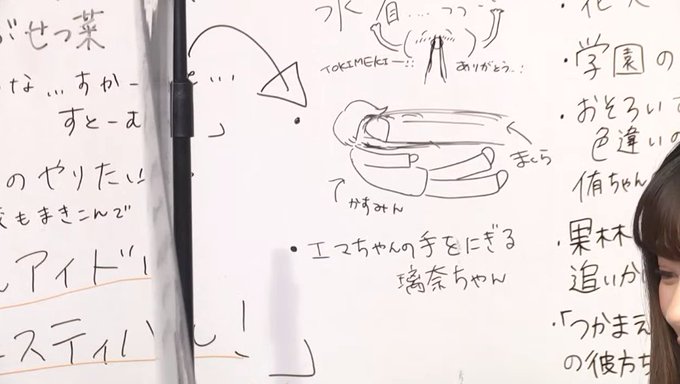 ぶせつ菜
な…すかー
すとーむ」
のやりたい
もまきこんで
アイド
スティバル!
」
TOKIMEKI—!!
ありがとう..!
まくら
かすみん
・エマちゃんの手をにぎる
璃奈ちゃん
・学園の
・おそろいで
色違いの
侑ちゃん
・果林
追いか
・「つかまえ
の彼方ち